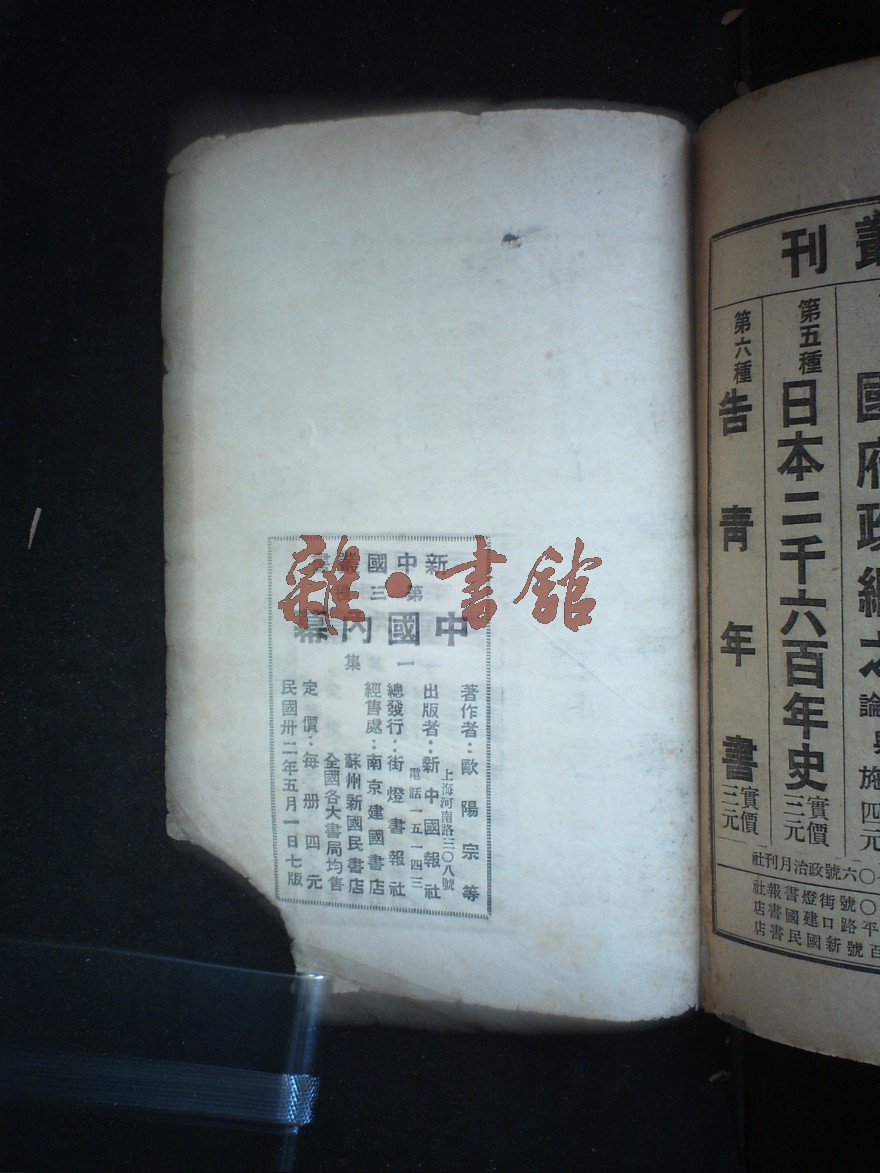 刊叢
國府政綱之
論與
施
四元
第五種
日本二千六百年史
實價
三元
第六種
告青年書
實價
三元
六號政治月刊社
號街燈書報社
平路口建國書店
百號新國民書店
雜·書館
新中國叢書
第三種
中國內幕
一集
著作者：歐陽宗等
上海河南路三〇八號
出版者：新中國報社
電話一五一四三
總發行：街燈書報社
經售處：南京建國書店
蘇州新國民書店
全國各大書局均售
定價：每册四元
民國卅二年五月一日七版